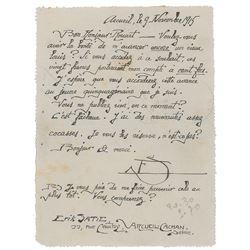 Arcueil, le 9 Novembre 1915
Bon Monsieur Rouart — Voulez vous
avoir la bonté de m'avancer encore un vieux
louis? Si vous accédez à ce souhait, ces
vingt francs porteraient mon compte à cent frcs.
J'espère que vous accorderez cette avance
au jeune quinquagénaire que je suis.
Vous ne publiez rien, en ce moment?
C'est fâcheux. J'ai des nouveautés assez
cocasses. Je vous les réserve, n'est-ce pas?
Bonjour & merci.
ES
P.S. Je vous prie de me faire parvenir cela au
plus tôt. Vous comprenez?
Erik SATIE
22, rue Cauchy, ARCUEIL-CACHAN